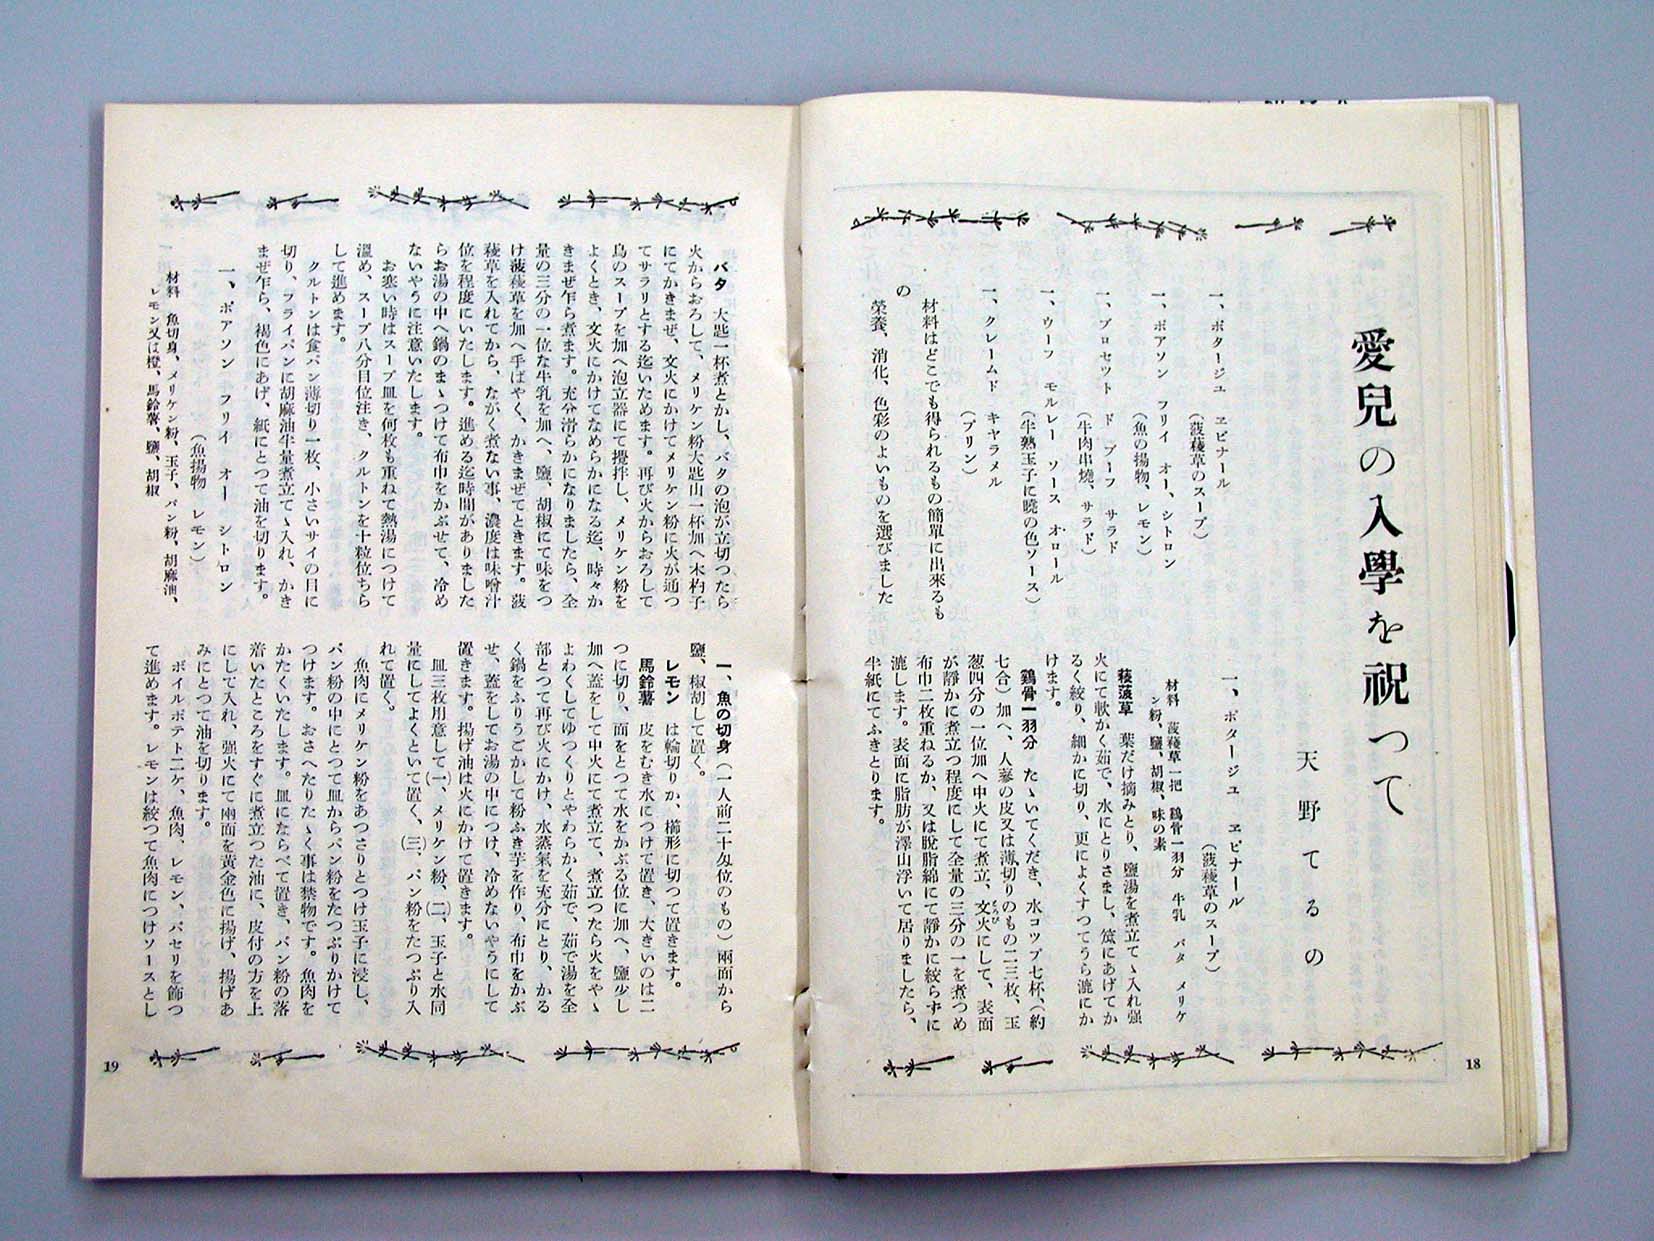 愛兒の入學を祝つて
天野てるの
一、ポタージュ ヱピナール
(菠薐草のスープ)
一、ポアソン フリイ オー、シトロン
(魚の揚物、レモン)
一、ブロセツト ド ブーフ サラド
(牛肉串燒、サラド)
一、ウーフ モルレー ソース オロール
(半熟玉子に曉の色ソース)
一、クレームド キヤラメル
(プリン)
材料はどこでも得られるもの簡單に出來るも
の
榮養、消化、色彩のよいものを選びました
一、ポタージユ ヱピナール
(菠薐草のスープ)
材料 菠薐草一把 鷄骨一羽分 牛乳 バタ メリケ
ン粉、鹽、胡椒、味の素
薐菠草 葉だけ摘みとり、鹽湯を煮立てゝ入れ强
火にて軟かく茹で、水にとりさまし、笊にあげてか
るく絞り、細かに切り、更によくすつてうら漉にか
けます。
鷄骨一羽分 たゝいてくだき、水コツプ七杯、(約
七合)加へ、人蔘の皮又は薄切りのもの二三枚、玉
葱四分の一位加へ中火にて煮立、文火にして、表面
が靜かに煮立つ程度にして全量の三分の一を煮つめ
布巾二枚重ねるか、又は脫脂綿にて靜かに絞らずに
漉します。表面に脂肪が澤山浮いて居りましたら、
半紙にてふきとります。
18
バタ 大匙一杯煮とかし、バタの泡が立切つたら
火からおろして、メリケン粉大匙山一杯加へ木杓子
にてかきまぜ、文火にかけてメリケン粉に火が通つ
てサラリとする迄いためます。再び火からおろして
鳥のスープを加へ泡立器にて攪拌し、メリケン粉を
よくとき、文火にかけてなめらかになる迄、時々か
きまぜ乍ら煮ます。充分滑らかになりましたら、全
量の三分の一位な牛乳を加へ、鹽、胡椒にて味をつ
け菠薐草を加へ手ばやく、かきまぜてときます。菠
薐草を入れてから、ながく煮ない事、濃度は味噌汁
位を程度にいたします。進める迄時間がありました
らお湯の中へ鍋のまゝつけて布巾をかぶせて、冷め
ないやうに注意いたします。
お寒い時はスープ皿を何枚も重ねて熱湯につけて
溫め、スープ八分目位注き、クルトンを十粒位ちら
して進めます。
クルトンは食パン薄切り一枚、小さいサイの目に
切り、フライパンに胡麻油半量煮立てゝ入れ、かき
まぜ乍ら、褐色にあげ、紙にとつて油を切ります。
一、ポアソン フリイ オー シトロン
(魚揚物 レモン)
材料 魚切身、メリケン粉、玉子、パン粉、胡麻油、
レモン又は橙、馬鈴薯、鹽、胡椒
一、魚の切身(一人前二十匁位のもの)兩面から
鹽、椒胡して置く。
レモン は輪切りか、櫛形に切つて置きます。
馬鈴薯 皮をむき水につけて置き、大きいのは二
つに切り、面をとつて水をかぶる位に加へ、鹽少し
加へ蓋をして中火にて煮立て、煮立つたら火をやゝ
よわくしてゆつくりとやわらかく茹で、茹で湯を全
部とつて再び火にかけ、水蒸氣を充分にとり、かる
く鍋をふりうごかして粉ふき芋を作り、布巾をかぶ
せ、蓋をしてお湯の中につけ、冷めないやうにして
置きます。揚げ油は火にかけて置きます。
皿三枚用意して(一)、メリケン粉、(二)、玉子と水同
量にしてよくといて置く、(三)、パン粉をたつぷり入
れて置く。
魚肉にメリケン粉をあつさりとつけ玉子に浸し、
パン粉の中にとつて皿からパン粉をたつぷりかけて
つけます。おさへたりたゝく事は禁物です。魚肉を
かたくいたします。皿にならべて置き、パン粉の落
着いたところをすぐに煮立つた油に、皮付の方を上
にして入れ、强火にて兩面を黃金色に揚げ、揚げあ
みにとつて油を切ります。
ボイルポテト二ケ、魚肉、レモン、パセリを飾つ
て進めます。レモンは絞つて魚肉につけソースとし
19